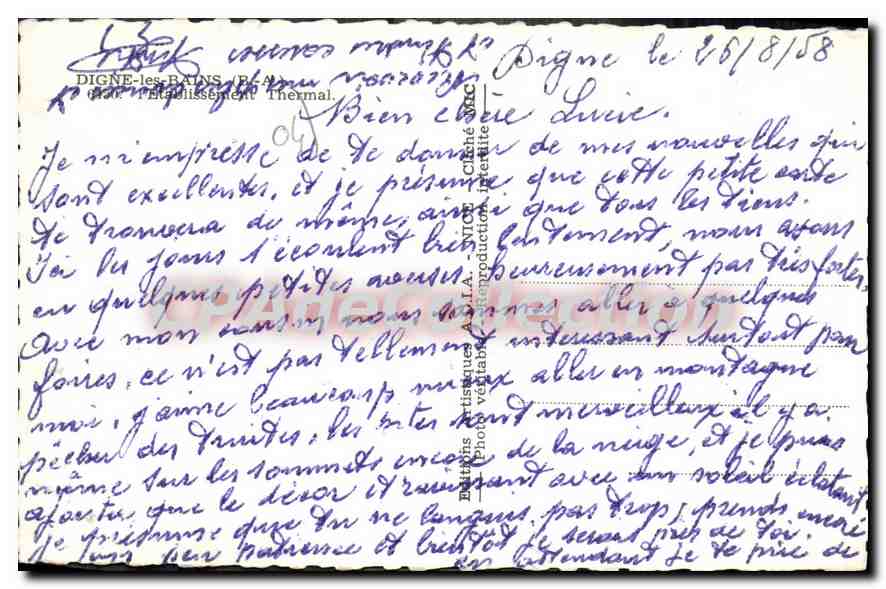 Digne le 26/8/58
DIGNE-les-BAINS (B.-A.)
6430. l'Etablissement Thermal.
04
Bien chère Lucie.
Je m'empresse de te donner de mes nouvelles qui
sont excellentes, et je présume que cette petite carte
te trouvera de même, ainsi que tous les tiens.
Ici les jours s'écoulent bien lentement, nous avons
eu quelques petites averses, heureusement pas très fortes,
avec mon cousin nous sommes allés à quelques
foires, ce n'est pas tellement intéressant surtout pour
moi, j'aime beaucoup mieux aller en montagne
pêcher des truites, les sites sont merveilleux il y a
même sur les sommets encore de la neige, et je puis
ajouter que le décor est ravissant avec un soleil éclatant
je présume que tu ne languis pas trop, prends encore
un peu patience et bientôt je serai près de toi.
en attendant je te prie de
Editions Artistiques - NICE - Cliché MIC
Photo véritable - Reproduction interdite
CPADeCollection